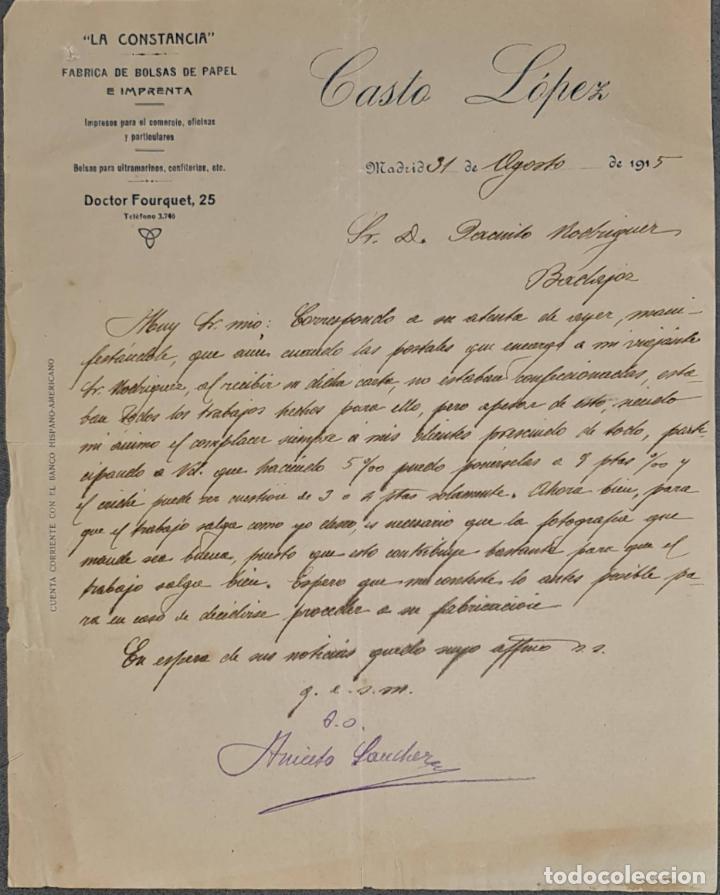 "LA CONSTANCIA"
FABRICA DE BOLSAS DE PAPEL
E IMPRENTA
Impresos para el comercio, oficinas
y particulares
Bolsas para ultramarinos, confiterías, etc.
Doctor Fourquet, 25
Teléfono 3.746
Casto López
Madrid 31 de Agosto de 1915
Sr. D. Jacinto Rodriguez
Badajoz
Muy Sr. mio: Correspondo a su atenta de ayer, mani-
festándole, que aun cuando las postales que encargó a mi viajante
Sr. Rodriguez, al recibir su dicha carta, no estaban confeccionadas, esta-
ban todos los trabajos hechos para ello, pero apesar de esto, siendo
mi animo el complacer siempre a mis clientes prescindo de todo, parti-
cipando a Vd. que haciendo 5 %00 puedo ponérselas a 9 ptas %00 y
el cliché puede ser cuestion de 3 o 4 ptas solamente. Ahora bien, para
que el trabajo salga como yo deseo, es necesario que la fotografia que
mande sea buena, puesto que esto contribuye bastante para que el
trabajo salga bien. Espero que me conteste lo antes posible pa-
ra en caso de decidirse proceder a su fabricacion
En espera de sus noticias quedo suyo affmo s.s.
q. e. s. m.
Aniceto Sanchez
CUENTA CORRIENTE CON EL BANCO HISPANO-AMERICANO
todocoleccion.net